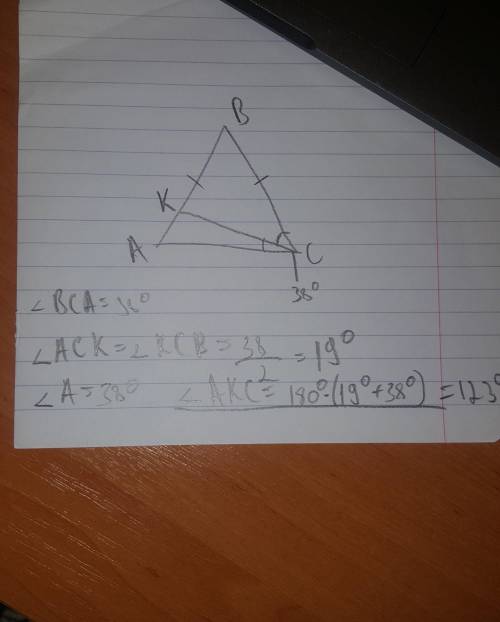 B
K
A
C
38°
∠BCA=38°
∠ACK=∠KCB=38/2=19°
∠A=38° ∠AKC=180°-(19°+38°)=123°